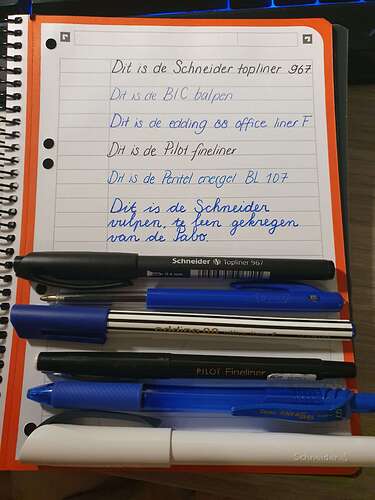 Dit is de Schneider topliner 967
Dit is de BIC balpen
Dit is de edding 88 office liner F
Dit is de Pilot fineliner
Dit is de Pentel energel BL 107
Dit is de Schneider
vulpen, te leen gekregen
van de Pabo.
Schneider Topliner 967
edding 88
PILOT Fineliner
Schneider